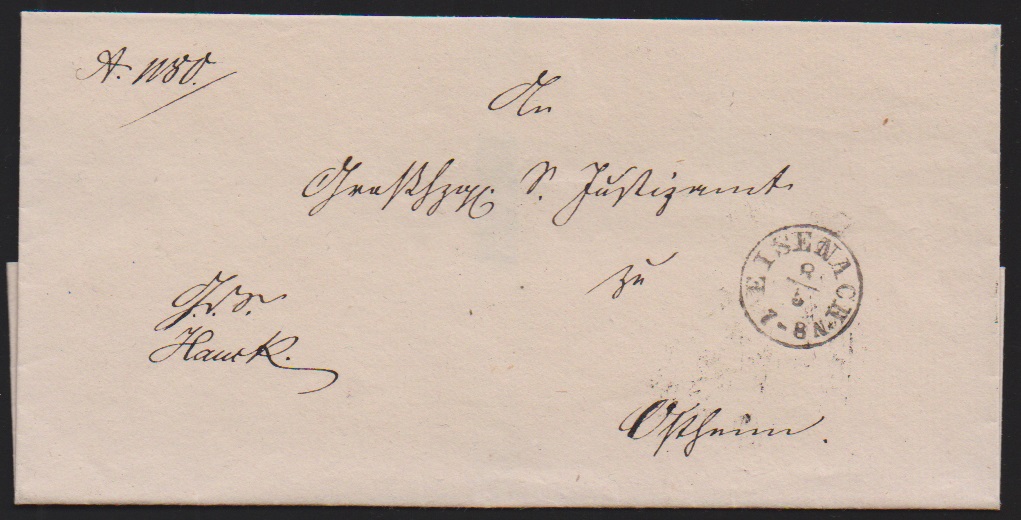 A. 1180.
An
Großhzgl. S. Justizamt
zu
Ostheim.
Hauck.
EISENACH
8
7-8N.